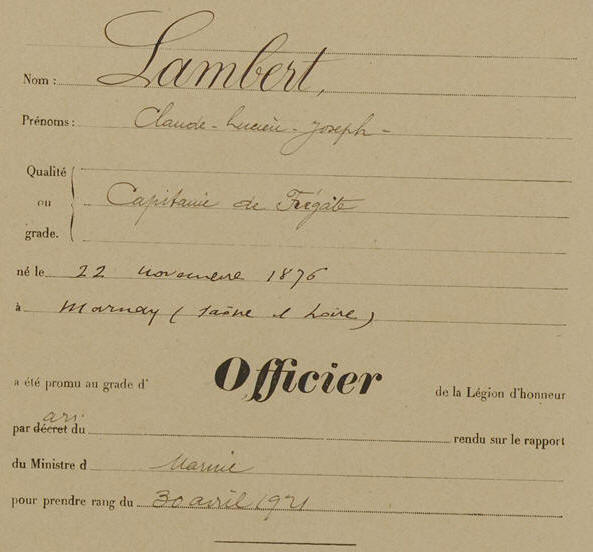 Nom : Lambert,
Prénoms : Claude-Lucien-Joseph-
Qualité
ou Capitaine de Frégate
grade.
né le 22 novembre 1876
à Marnay (Saône et Loire)
a été promu au grade d' Officier de la Légion d'honneur
arr.
par décret du rendu sur le rapport
du Ministre d Marine
pour prendre rang du 30 avril 1921